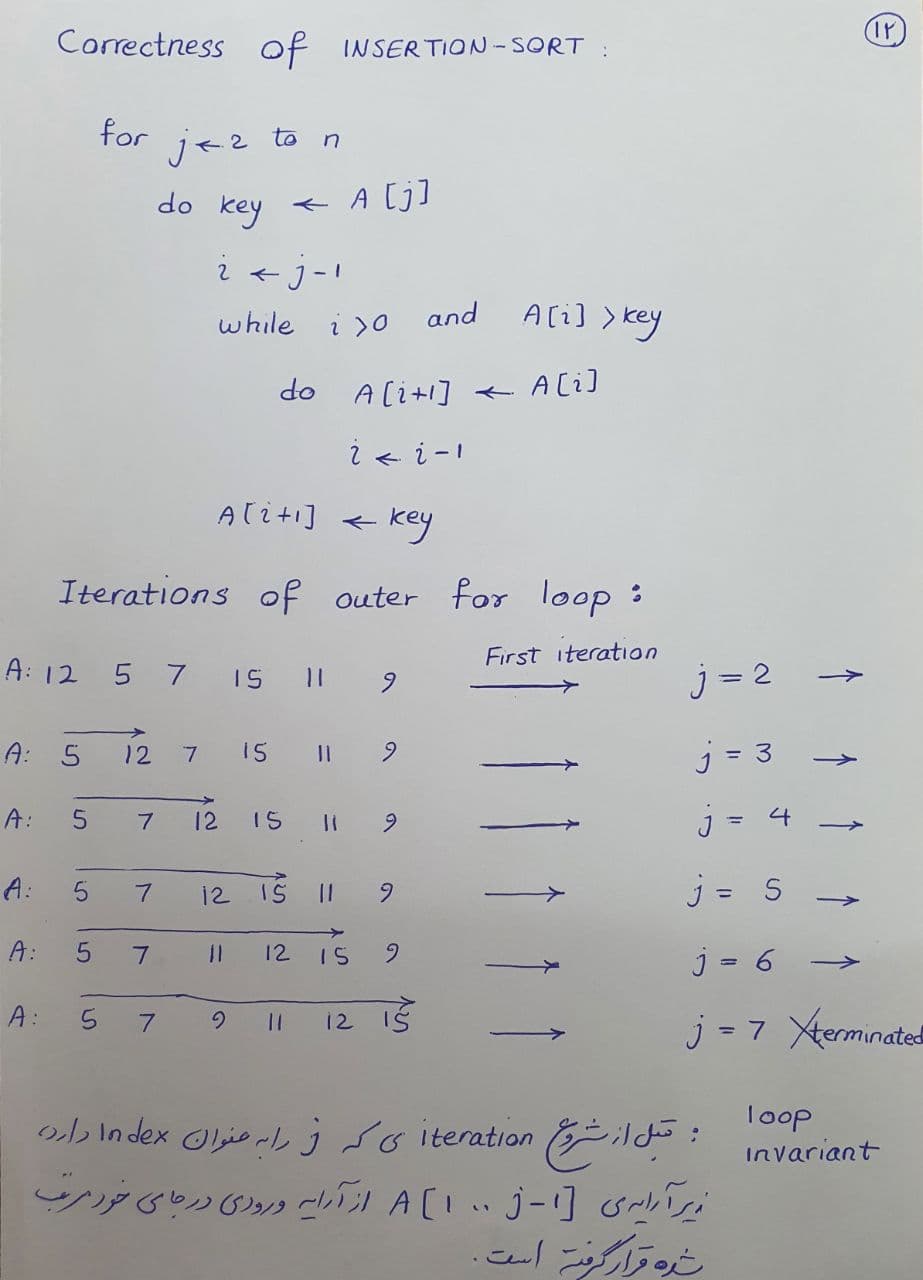 ۱۲
Correctness of INSERTION-SORT :
for j ← 2 to n
do key ← A[j]
i ← j-1
while i > 0 and A[i] > key
do A[i+1] ← A[i]
i ← i-1
A[i+1] ← key
Iterations of outer for loop :
A: 12 5 7 15 11 9 First iteration → j = 2 →
A: 5 12 7 15 11 9 → j = 3 →
A: 5 7 12 15 11 9 → j = 4 →
A: 5 7 12 15 11 9 → j = 5 →
A: 5 7 11 12 15 9 → j = 6 →
A: 5 7 9 11 12 15 → j = 7 X terminated
loop invariant : قبل از شروع iteration ی که j را به عنوان Index دارد
زیر آرایه‌ی A[1 .. j-1] از آرایه ورودی در جای خود مرتب
شده قرار گرفته است.